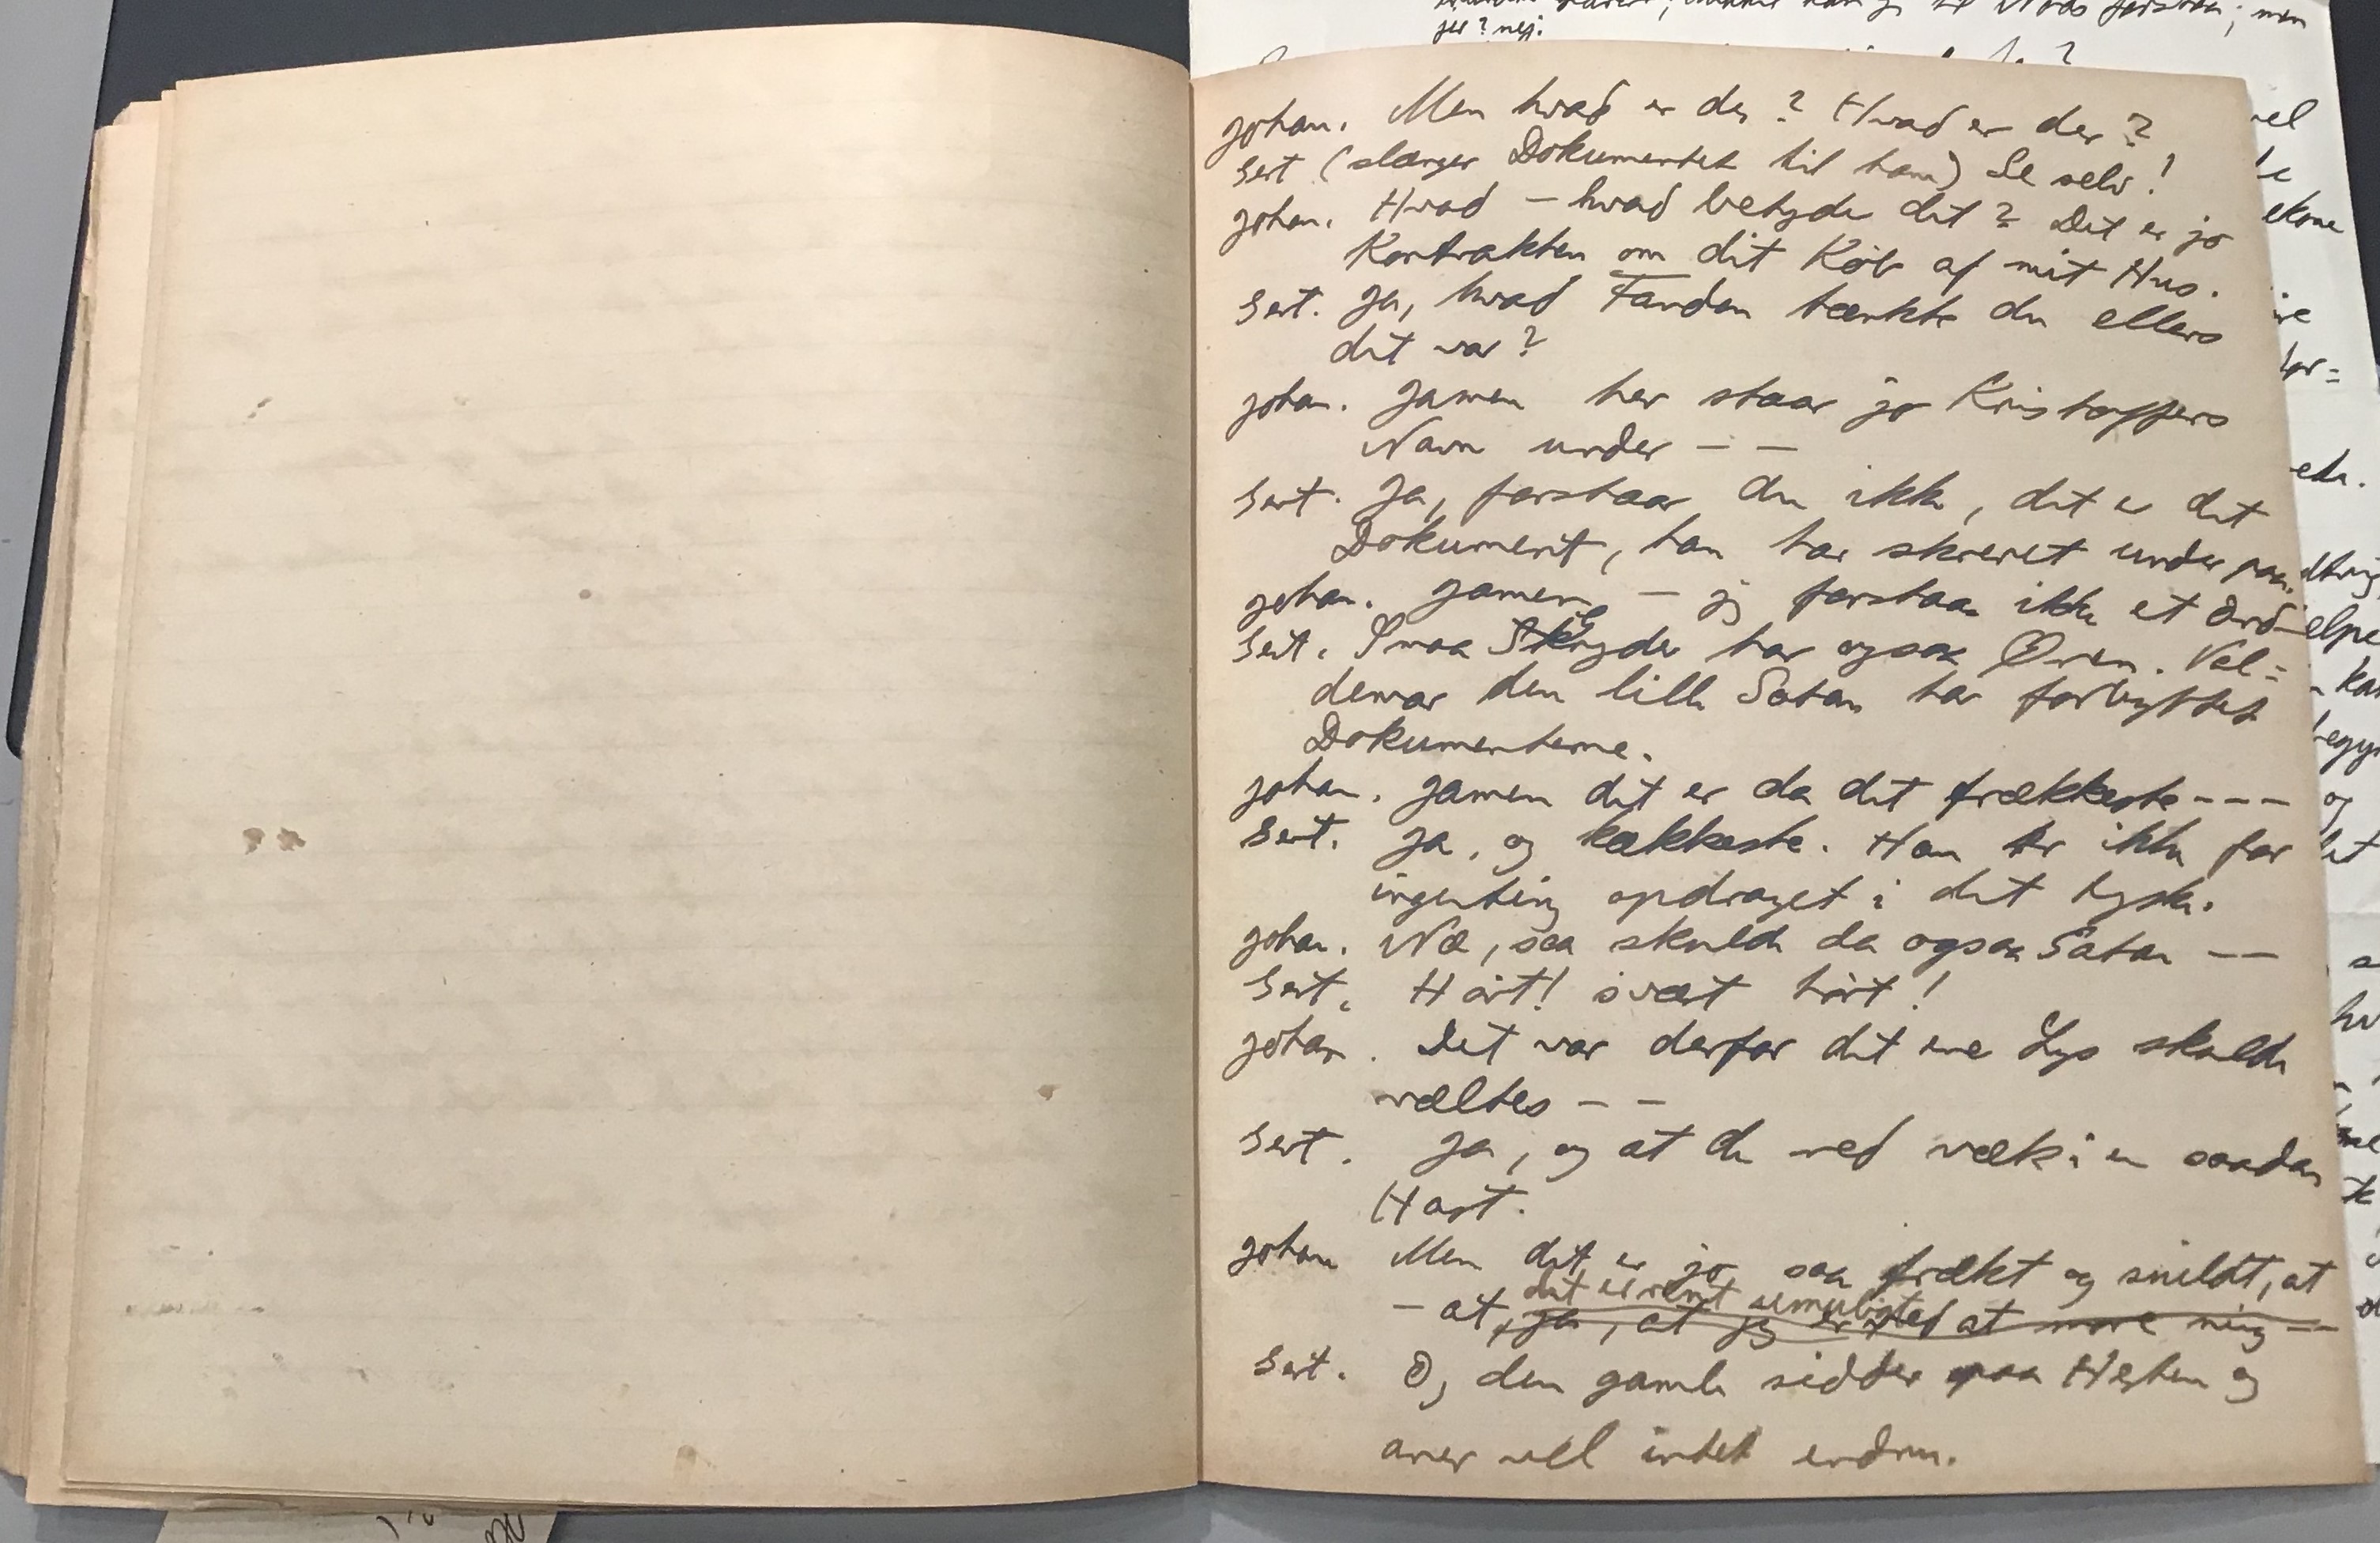 jer? nej.
Johan. Men hvad er der? Hvad er der?
Gert (slænger Dokumentet til ham) Se selv!
Johan. Hvad – hvad betyder det? Det er jo
Kontrakten om dit Køb af mit Hus.
Gert. Ja, hvad Fanden tænkte du ellers
det var?
Johan. Jamen her staar jo Kristoffers
Navn under – –
Gert. Ja, forstaar du ikke, det er det
Dokument, han har skrevet under paa.
Johan. Jamen – jeg forstaar ikke et Ord
Gert. Smaa Gryder har ogsaa Øren. Val=
demar den lille Satan har forbyttet
Dokumenterne.
Johan. Jamen det er da det frækkeste - - -
Gert. Ja, og kækkeste. Han er ikke for
ingenting opdraget i det tyske.
Johan. Næ, saa skulde da ogsaa Satan – –
Gert. Hört! svært hört!
Johan. Det var derfor det ene Lys skulde
væltes – –
Gert. Ja, og at du red væk i en saadan
Hast.
Johan Men det er jo saa frækt og snildt, at
det er rent umuligt
– at, ja, at jeg er ved at more mig – –
Gert. Og den gamle sidder paa Hesten og
aner vel intet endnu.